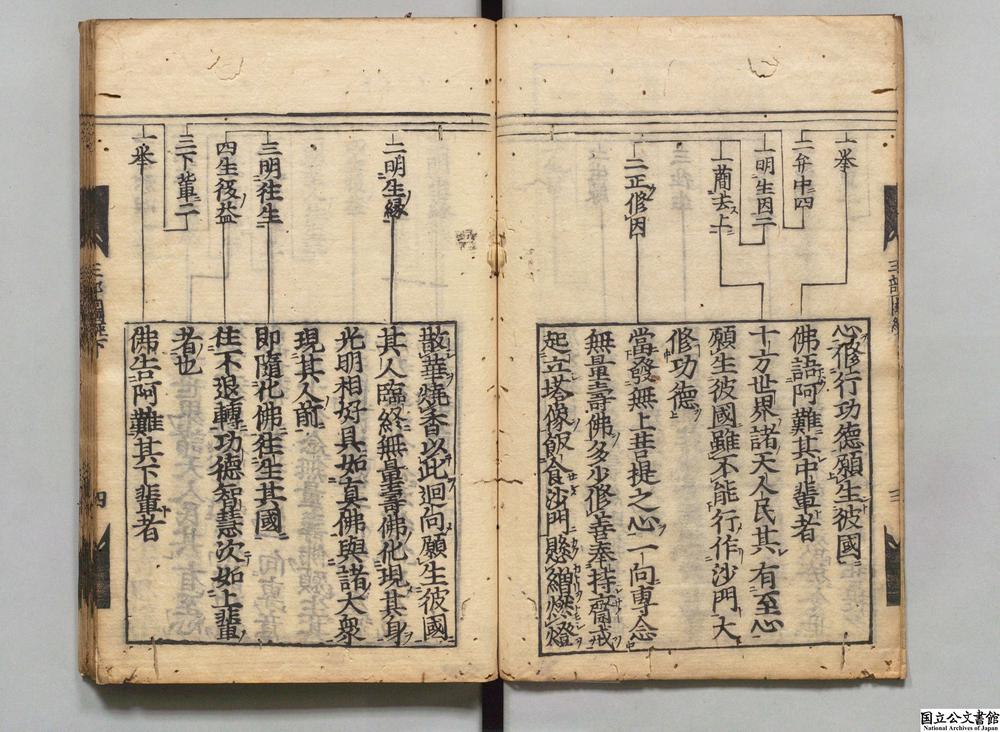 一挙
二弁中四
一明生因二
一蕑去上
二正修因
心修行功德願生彼國
佛語阿難其中輩者
十方世界諸天人民其有至心
願生彼國雖不能行作沙門大
修功德
當發無上菩提之心一向專念
無量壽佛多少修善奉持齋戒
起立塔像飯食沙門懸繒燃燈
二明生縁
三明往生
四生後益
三下輩二
一挙
散華燒香以此迴向願生彼國
其人臨終無量壽佛化現其身
光明相好具如真佛與諸大衆
現其人前
即隨化佛往生其國
住不退轉功德智慧次如上輩
者也
佛告阿難其下輩者
四
国立公文書館
National Archives of Japan